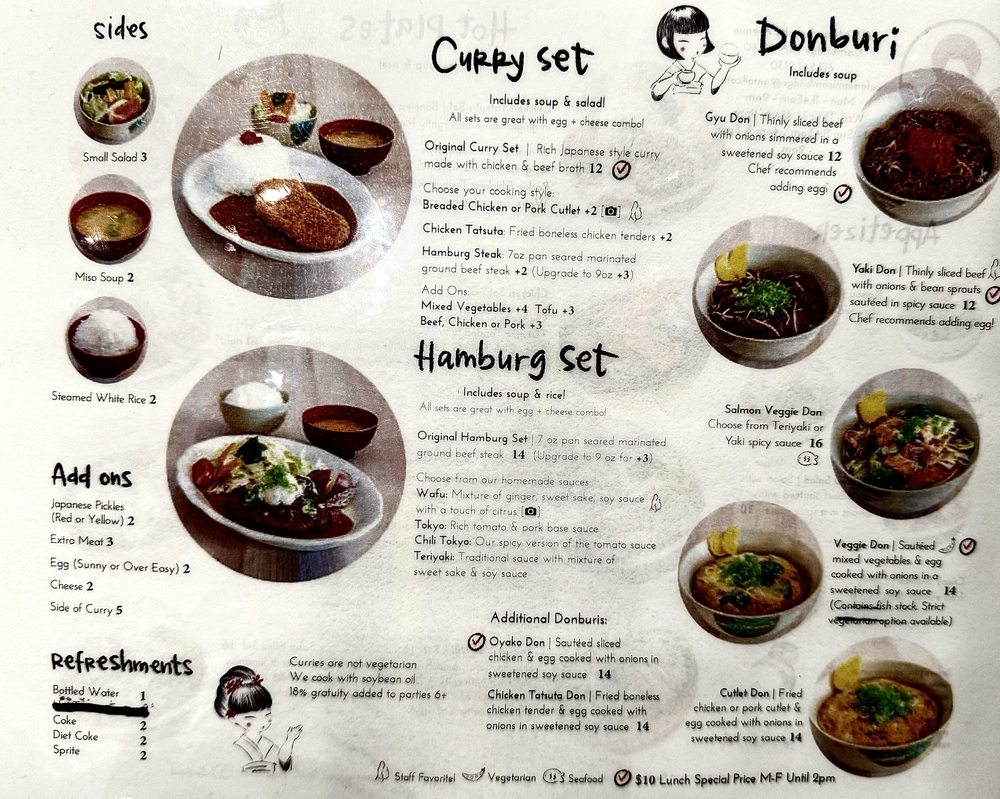 sides
Small Salad 3
Miso Soup 2
Steamed White Rice 2
Add ons
Japanese Pickles
(Red or Yellow) 2
Extra Meat 3
Egg (Sunny or Over Easy) 2
Cheese 2
Side of Curry 5
Refreshments
Bottled Water 1
Coke 2
Diet Coke 2
Sprite 2
Curry set
Includes soup & salad!
All sets are great with egg + cheese combo!
Original Curry Set | Rich Japanese style curry
made with chicken & beef broth 12
Choose your cooking style:
Breaded Chicken or Pork Cutlet +2
Chicken Tatsuta: Fried boneless chicken tenders +2
Hamburg Steak: 7oz pan seared marinated
ground beef steak +2 (Upgrade to 9oz +3)
Add Ons:
Mixed Vegetables +4 Tofu +3
Beef, Chicken or Pork +3
Hamburg Set
Includes soup & rice!
All sets are great with egg + cheese combo!
Original Hamburg Set | 7 oz pan seared marinated
ground beef steak 14 (Upgrade to 9 oz for +3)
Choose from our homemade sauces
Wafu: Mixture of ginger, sweet sake, soy sauce
with a touch of citrus
Tokyo: Rich tomato & pork base sauce
Chili Tokyo: Our spicy version of the tomato sauce
Teriyaki: Traditional sauce with mixture of
sweet sake & soy sauce
Curries are not vegetarian
We cook with soybean oil
18% gratuity added to parties 6+
Additional Donburis:
Oyako Don | Sautéed sliced
chicken & egg cooked with onions in
sweetened soy sauce 14
Chicken Tatsuta Don | Fried boneless
chicken tender & egg cooked with
onions in sweetened soy sauce 14
Donburi
Includes soup
Gyu Don | Thinly sliced beef
with onions simmered in a
sweetened soy sauce 12
Chef recommends
adding egg!
Yaki Don | Thinly sliced beef
with onions & bean sprouts
sautéed in spicy sauce 12
Chef recommends adding egg!
Salmon Veggie Don
Choose from Teriyaki or
Yaki spicy sauce 16
Veggie Don | Sautéed
mixed vegetables & egg
cooked with onions in a
sweetened soy sauce 14
(Contains fish stock. Strict
vegetarian option available)
Cutlet Don | Fried
chicken or pork cutlet &
egg cooked with onions in
sweetened soy sauce 14
Staff Favorite! Vegetarian Seafood $10 Lunch Special Price M-F Until 2pm